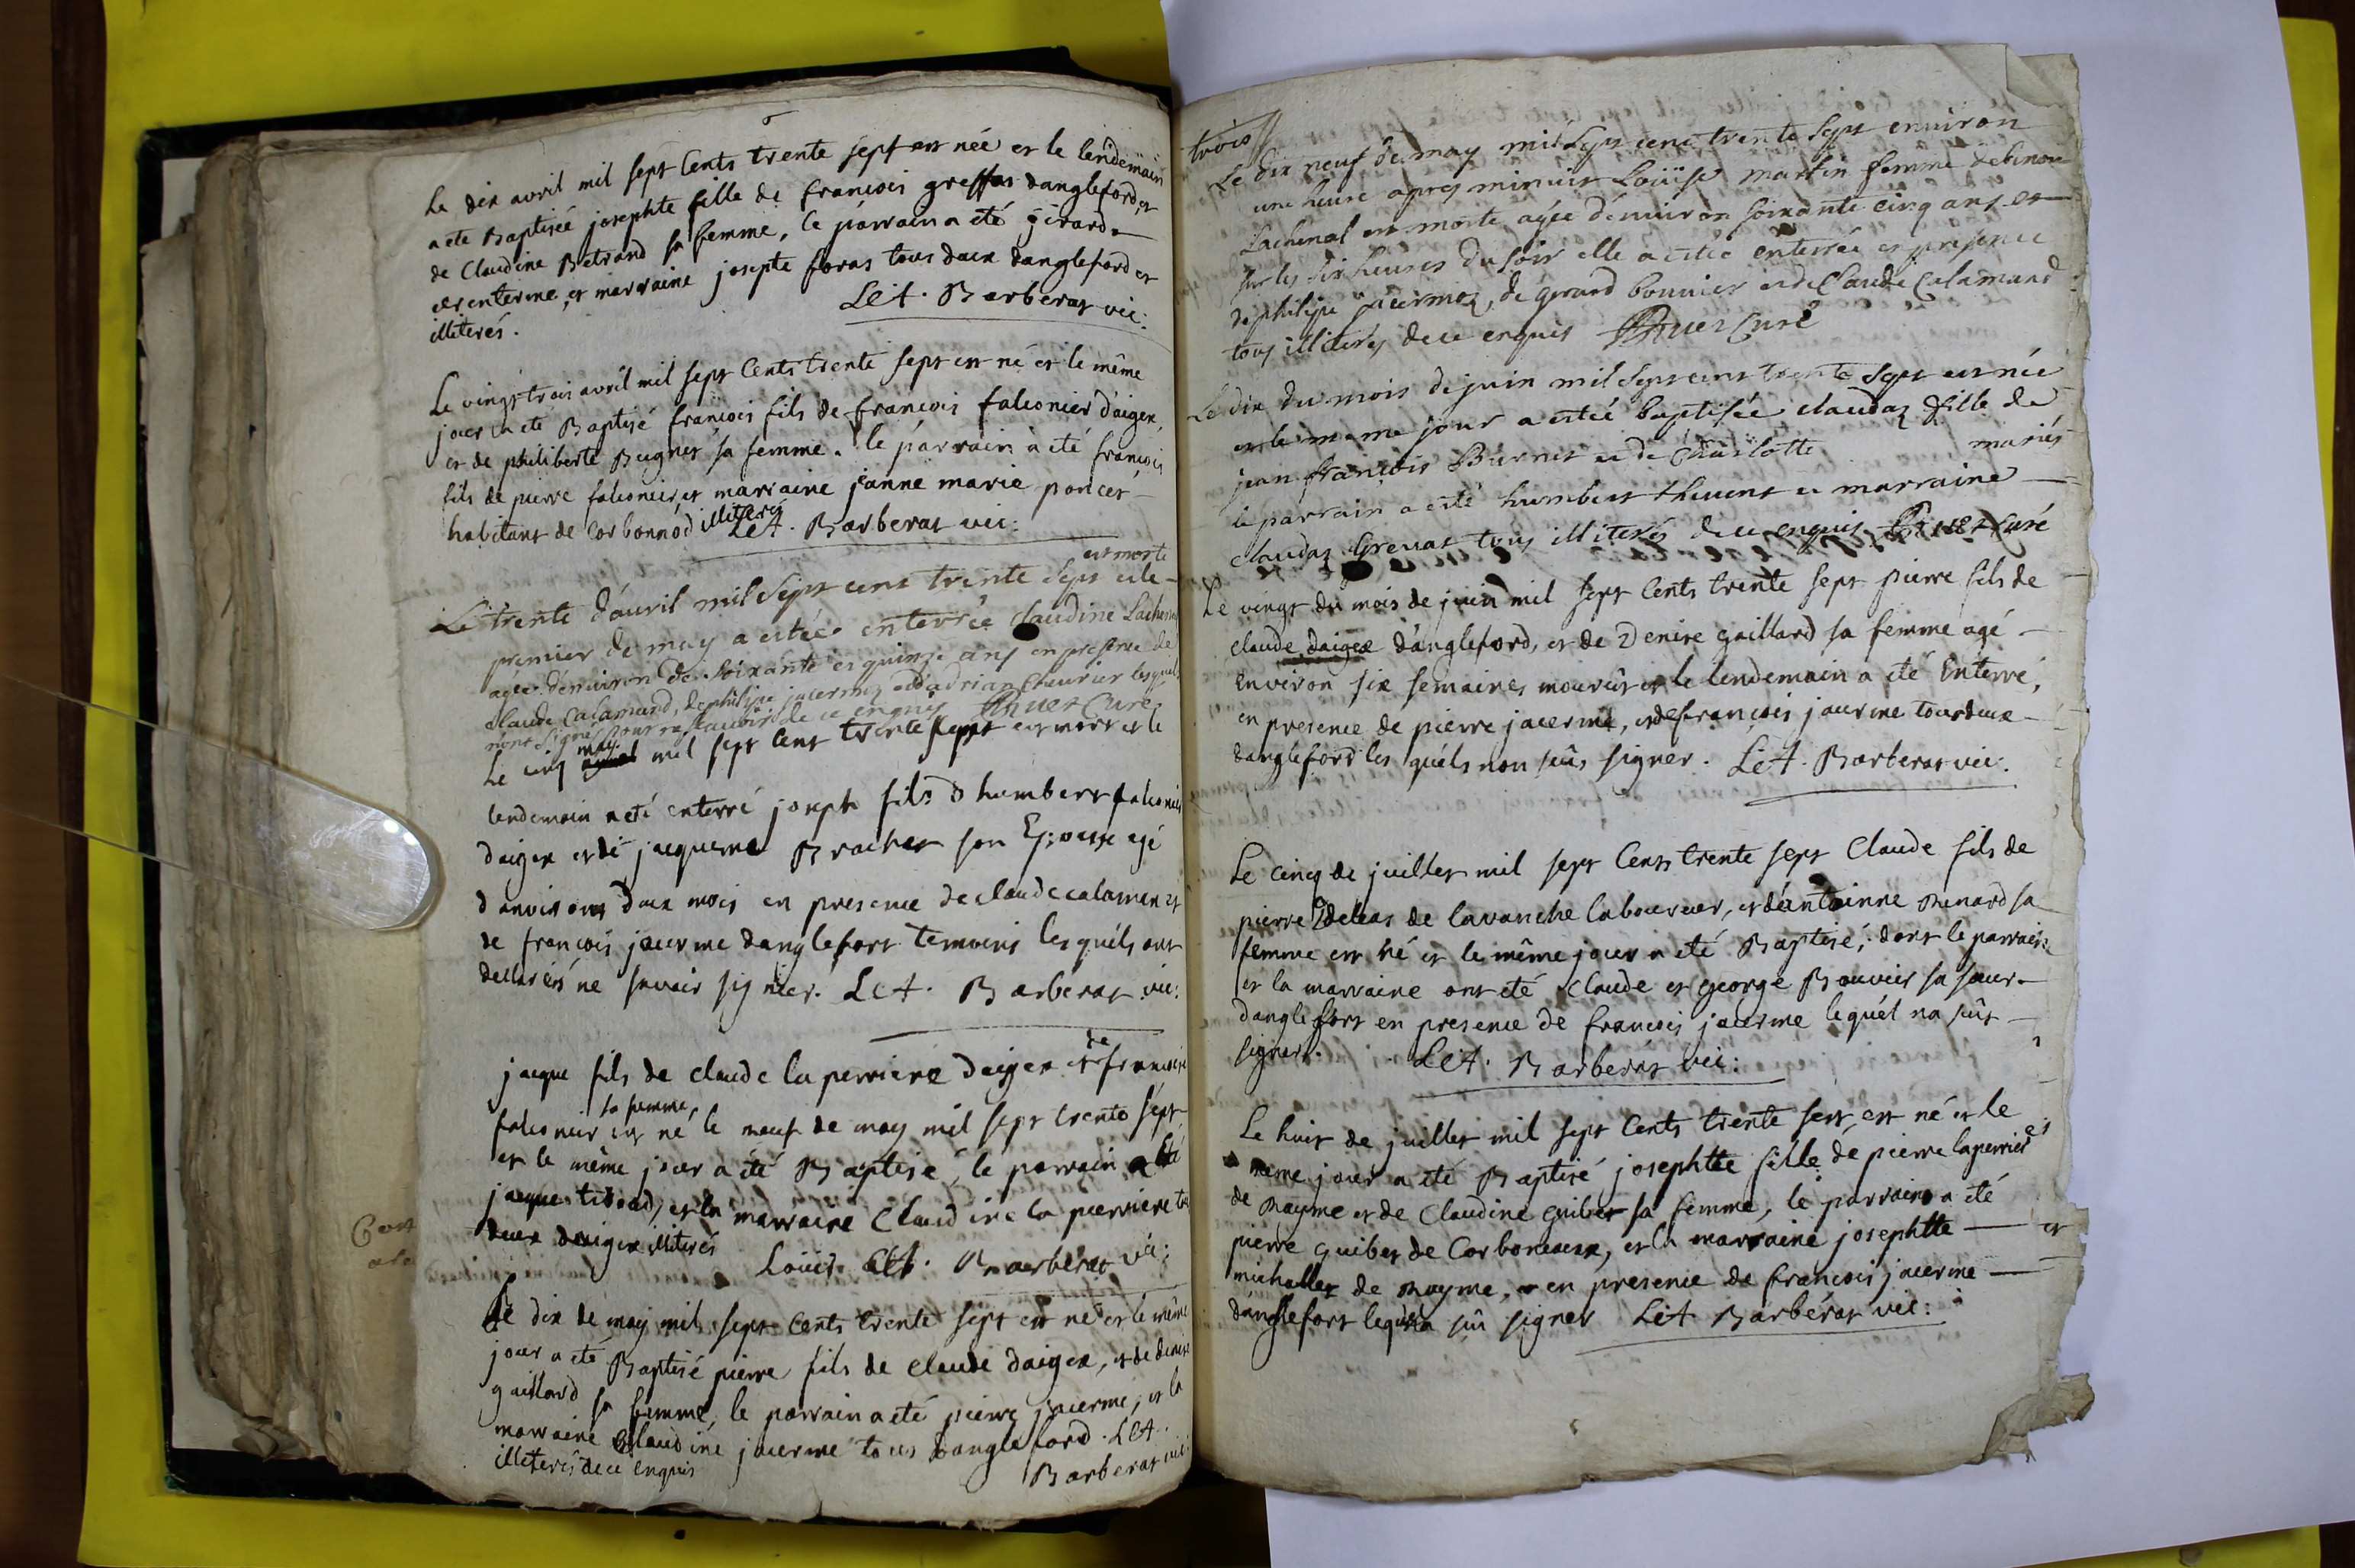 Le dix avril mil sept Cents trente sept est née et le lendemain
a été Baptisée josephte fille de francois greffas dangleford, et
de Claudine Betrand sa femme, le parrain a été girard
et marraine josepte foras tous deux dangleford et
illiterés. Let. Barberat vic:
Le vingt trois avril mil sept Cents trente sept est né et le même
jour a été Baptisé francois fils de francois falconier d'aigex,
et de philiberte Bugnet sa femme. le parrain à été francois
fils de pierre falconier, et marraine janne marie poncet
habitans de Corbonnod illiterés Let. Barberat vic:
est morte
Le trente d'auril mil sept cent trente sept et le
premier de may a estée enterrée Claudine Lachenal
agée denuiron de soixante et quinze ans en presence de
Claude Calamand, de philipe jacermoz et d'adrian Cheurier lesquels
n'ont signé pour ne scauoir de ce enquis Thuer Curé
Le cinq may mil sept cent trente sept est mort et le
lendemain a été enterré joseph fils d humbert falconier
daigex et de jacqueme Brachet son Epouse agé
d anviron deux mois en presence de claude calamen et
de francois jacerme danglefort temoins lesquéls ont
dellarés né savoir signier. Let. Barberat vic:
jacque fils de claude la perriere daigex et de francoise
falconier sa femme, est né le neuf de may mil sept trente sept
et le même jour a été Baptisé, le parrain a été
jacque tiboud, et la marraine Claudine la perriere tous
deux daigex illiterés Loüis Let. Barberat vic:
Le dix de may mil sept Cents trente sept est né et le même
jour a été Baptisé pierre fils de claude daigex, et de denise
gaillard sa femme, le parrain a été pierre jacerme, et la
marraine Claudine jacerme tous dangleford. Let.
illiterés de ce enquis Barberat vic:
trois
Le dix neuf de may mil sept cent trente sept enuiron
une heure apres minuit Loüise martin femme de benoit
Lachenal est morte agée d'enuiron soixante cinq ans et
sur les six heures du soir elle a estée enterrée en presence
de philipe jacermoz, de girard bouuier et de Claude Calamand
tous illiterés de ce enquis Thuer Curé
Le dix du mois de juin mil sept cent trente sept est née
et le meme jour a estée baptisée claudaz fille de
jean francois Burnet et de Charlotte mariés
le parrain a esté humbert theuent et marraine
claudaz Greuat tous illiterés de ce enquis Thuer Curé
Le vingt du mois de juin mil sept Cents trente sept pierre fils de
claude daigex d'angleford, et de Denise gaillard sa femme agé
environ six semaines mourût et le lendemain a été Enterré,
en presence de pierre jacerme, et de francois jacerme tous deux
dangleford les quéls non sûs signer. Let. Barberat vic.
Le cinq de juillet mil sept Cents trente sept Claude fils de
pierre Deleas de lavanche laboureur, et d'antoinne menard sa
femme est né et le même jour a été Baptisé, dont le parrain
et la marraine ont été Claude et George Bouvier sa sœur
danglefort en presence de francois jacerme lequél na sût
signer. Let. Barberat vic:
Le huit de juillet mil sept Cents trente sept, est né et le
meme jour a été Baptisé josephtte fille de pierre laperriere
de mayme et de Claudine guibet sa femme, le parrain a été
pierre guibet de Corboneaux, et la marraine josephtte
michallet de mayme, en presence de francois jacerme
danglefort lequél na sû signer Let Barbérat vic: